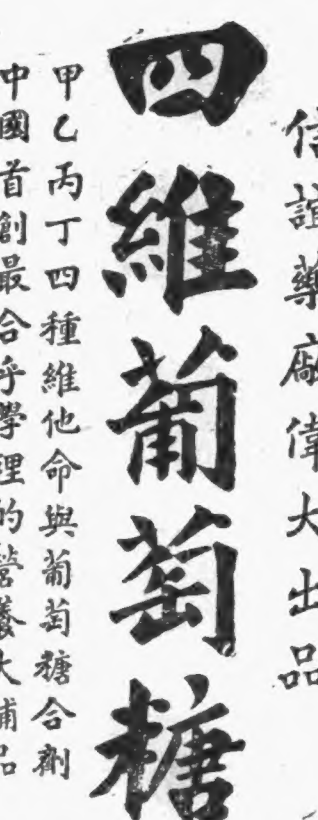 信誼藥廠偉大出品
四維葡萄糖
甲乙丙丁四種維他命與葡萄糖合劑
中國首創最合乎學理的營養大補品